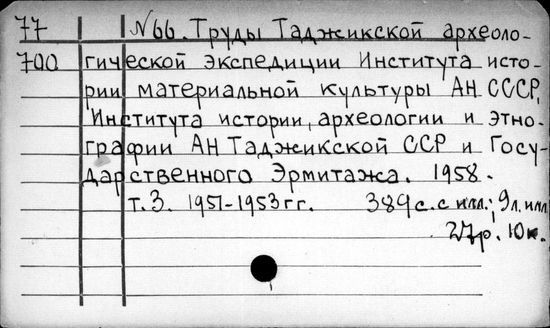 77 № 66. Труды Таджикской археоло-
700 гической экспедиции Института исто-
рии материальной культуры АН СССР,
Института истории, археологии и этно-
графии АН Таджикской ССР и Госу-
дарственного Эрмитажа. 1958.
т. 3. 1951-1953 гг. 389 с. с илл.; 9 л. илл
27р. 10к.